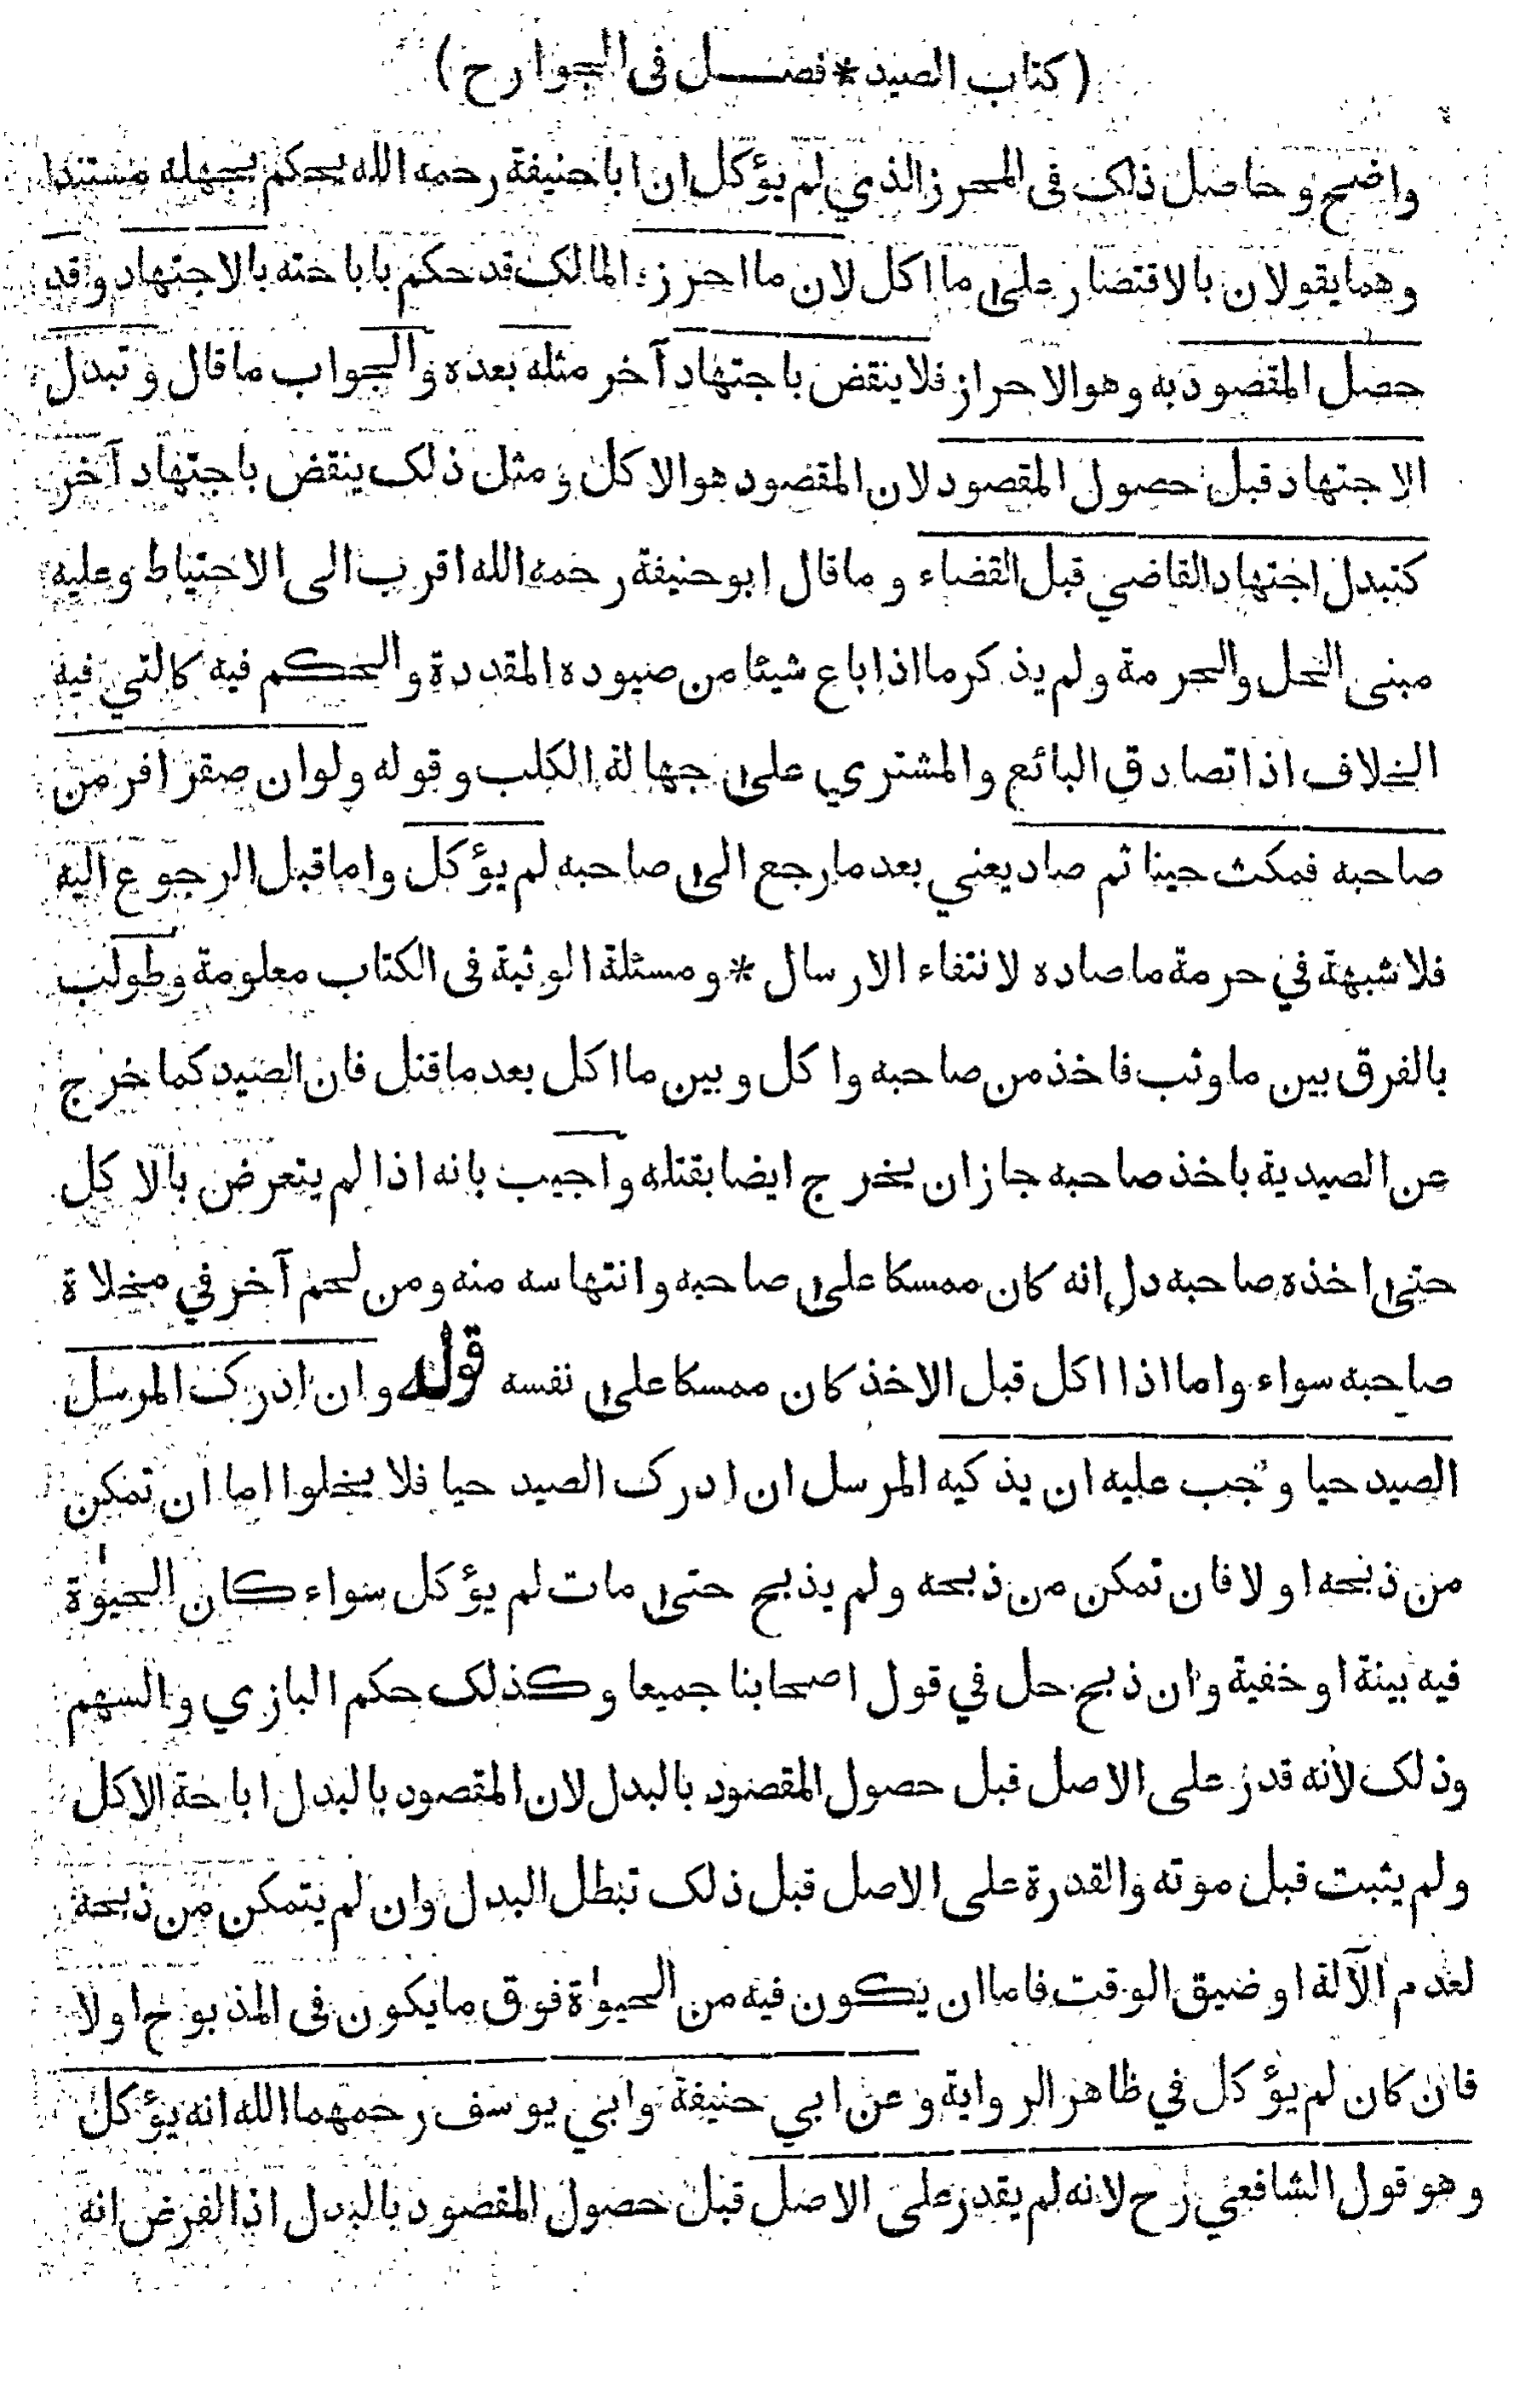 ( كتاب الصيد * فصل فى الجوارح )
واضح و حاصل ذلك فى المحرز الذي لم يؤكل ان ابا حنيفة رحمه الله يحكم بجهله مستندا
وهما يقولان بالاقتصار على ما اكل لان ما احرزه المالك قد حكم باباحته بالاجتهاد وقد
حصل المقصود به وهو الاحراز فلا ينقض باجتهاد آخر مثله بعده والجواب ما قال وتبدل
الاجتهاد قبل حصول المقصود لان المقصود هو الاكل و مثل ذلك ينقض باجتهاد آخر
كتبدل اجتهاد القاضي قبل القضاء و ما قال ابو حنيفة رحمه الله اقرب الى الاحتياط وعليه
مبنى الحل والحرمة ولم يذكر ما اذا باع شيئا من صيوده المقددة والحكم فيه كالتي فيه
الخلاف اذا تصادق البائع والمشتري على جهالة الكلب و قوله ولو ان صقرا فر من
صاحبه فمكث حينا ثم صاد يعني بعد ما رجع الى صاحبه لم يؤكل واما قبل الرجوع اليه
فلا شبهة في حرمة ما صاده لانتفاء الارسال * و مسئلة الوثبة فى الكتاب معلومة وطولب
بالفرق بين ما وثب فاخذ من صاحبه واكل و بين ما اكل بعد ما قتل فان الصيد كما خرج
عن الصيدية باخذ صاحبه جاز ان يخرج ايضا بقتله واجيب بانه اذا لم يتعرض بالاكل
حتى اخذه صاحبه دل انه كان ممسكا على صاحبه وانتهاسه منه ومن لحم آخر في مخلاة
صاحبه سواء واما اذا اكل قبل الاخذ كان ممسكا على نفسه قوله وان ادرك المرسل
الصيد حيا وجب عليه ان يذكيه المرسل ان ادرك الصيد حيا فلا يخلوا اما ان تمكن
من ذبحه او لا فان تمكن من ذبحه ولم يذبح حتى مات لم يؤكل سواء كان الحيوٰة
فيه بينة او خفية وان ذبح حل في قول اصحابنا جميعا وكذلك حكم البازي والسهم
وذلك لانه قدر على الاصل قبل حصول المقصود بالبدل لان المقصود بالبدل اباحة الاكل
ولم يثبت قبل موته والقدرة على الاصل قبل ذلك تبطل البدل وان لم يتمكن من ذبحه
لعدم الآلة او ضيق الوقت فاما ان يكون فيه من الحيوٰة فوق ما يكون فى المذبوح اولا
فان كان لم يؤكل في ظاهر الرواية وعن ابي حنيفة وابي يوسف رحمهما الله انه يؤكل
وهو قول الشافعي رح لانه لم يقدر على الاصل قبل حصول المقصود بالبدل اذ الفرض انه